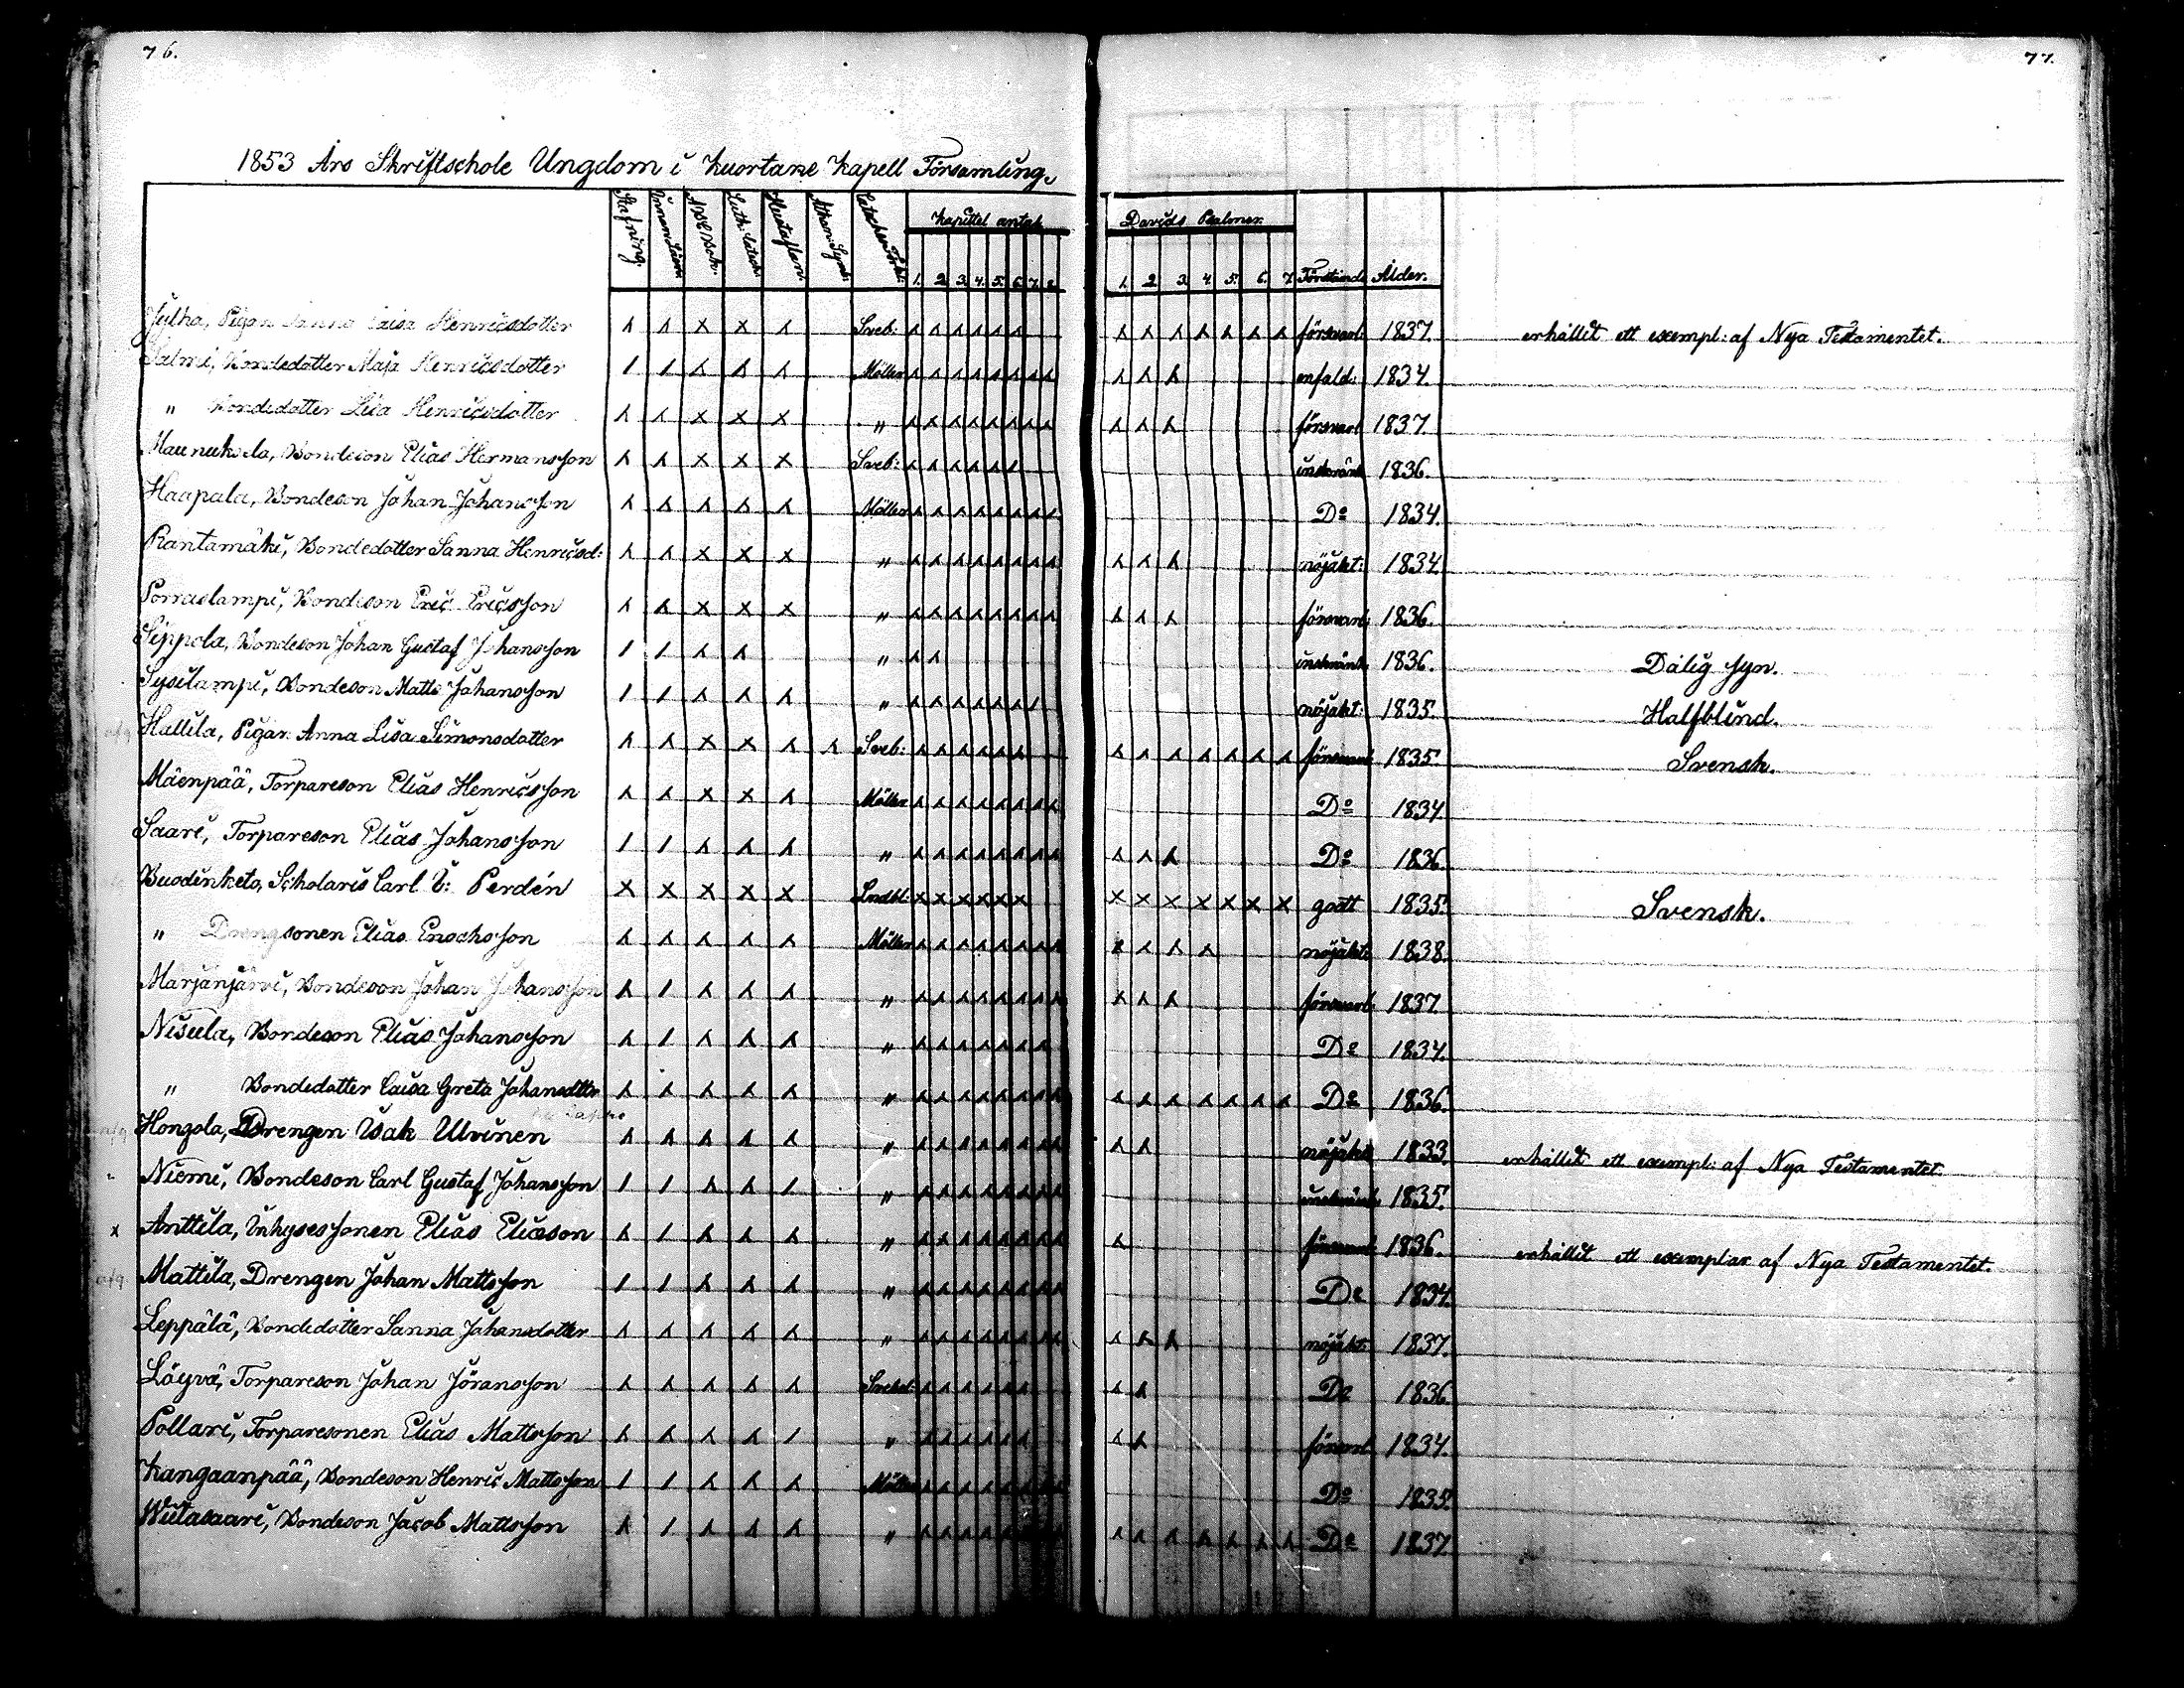 76.
77.
1853 Års Skriftschole Ungdom i Kuortane Kapell Församling.
Stafning. Innan Läsn. Luth: Catech: Hustaflan. Athan: Symb: Kapittel antal Davids Psalmer. Förstånd Ålder.
1. 2. 3. 4. 5. 6. 7. 8. 1. 2. 3. 4. 5. 6. 7.
Julha, Pigan Sanna Caisa Henricsdotter Sveb: försvarl: 1837. erhållit ett exempl: af Nya Testamentet.
Salmi, Bondedotter Maja Henricsdotter Möller enfald: 1834.
" Bondedotter Lisa Henricsdotter " försvarl 1837.
Maunuksela, Bondeson Elias Hermansson Sveb: inskränk 1836.
Haapala, Bondeson Johan Johansson Möller Do 1834.
Rantamäki, Bondedotter Sanna Henricsd: " nöjakt: 1834.
Porraslampi, Bondeson Eric Ericsson " försvarl: 1836.
Seppola, Bondeson Johan Gustaf Johansson " inskränk 1836. Dålig syn.
Sysilampi, Bondeson Matts Johansson " nöjakt: 1835. Halfblind.
Hallila, Pigan Anna Lisa Simonsdotter Sveb: försvarl 1835. Svensk.
Mäenpää, Torpareson Elias Henricsson Möller Do 1834.
Saari, Torpareson Elias Johansson " Do 1836.
Buodinketo, Scholaris Carl E: Perdén Lindbl: godt 1835. Svensk.
" Drengsonen Elias Enochsson Möller nöjakt: 1838.
Marjanjärvi, Bondeson Johan Johansson " försvarl 1837.
Nisula, Bondeson Elias Johansson " Do 1834.
" Bondedotter Caisa Greta Johansdtter " Do 1836.
Hongola, Drengen Isak Ulvinen " nöjakt: 1833. erhållit ett exempl: af Nya Testamentet.
Niemi, Bondeson Carl Gustaf Johansson " inskränk. 1835.
x Anttila, Inhysessonen Elias Eliasson " försvarl 1836. erhållit ett exemplar af Nya Testamentet.
Mattila, Drengen Johan Mattsson " Do 1834.
Leppälä, Bondedotter Sanna Johansdotter " nöjakt: 1837.
Löyvä, Torpareson Johan Jöransson Do 1836.
Pollari, Torparesonen Elias Mattsson " försvarl 1834.
Kangaanpää, Bondeson Henric Mattsson Möller Do 1835.
Wiitasaari, Bondeson Jacob Mattsson " Do 1837.